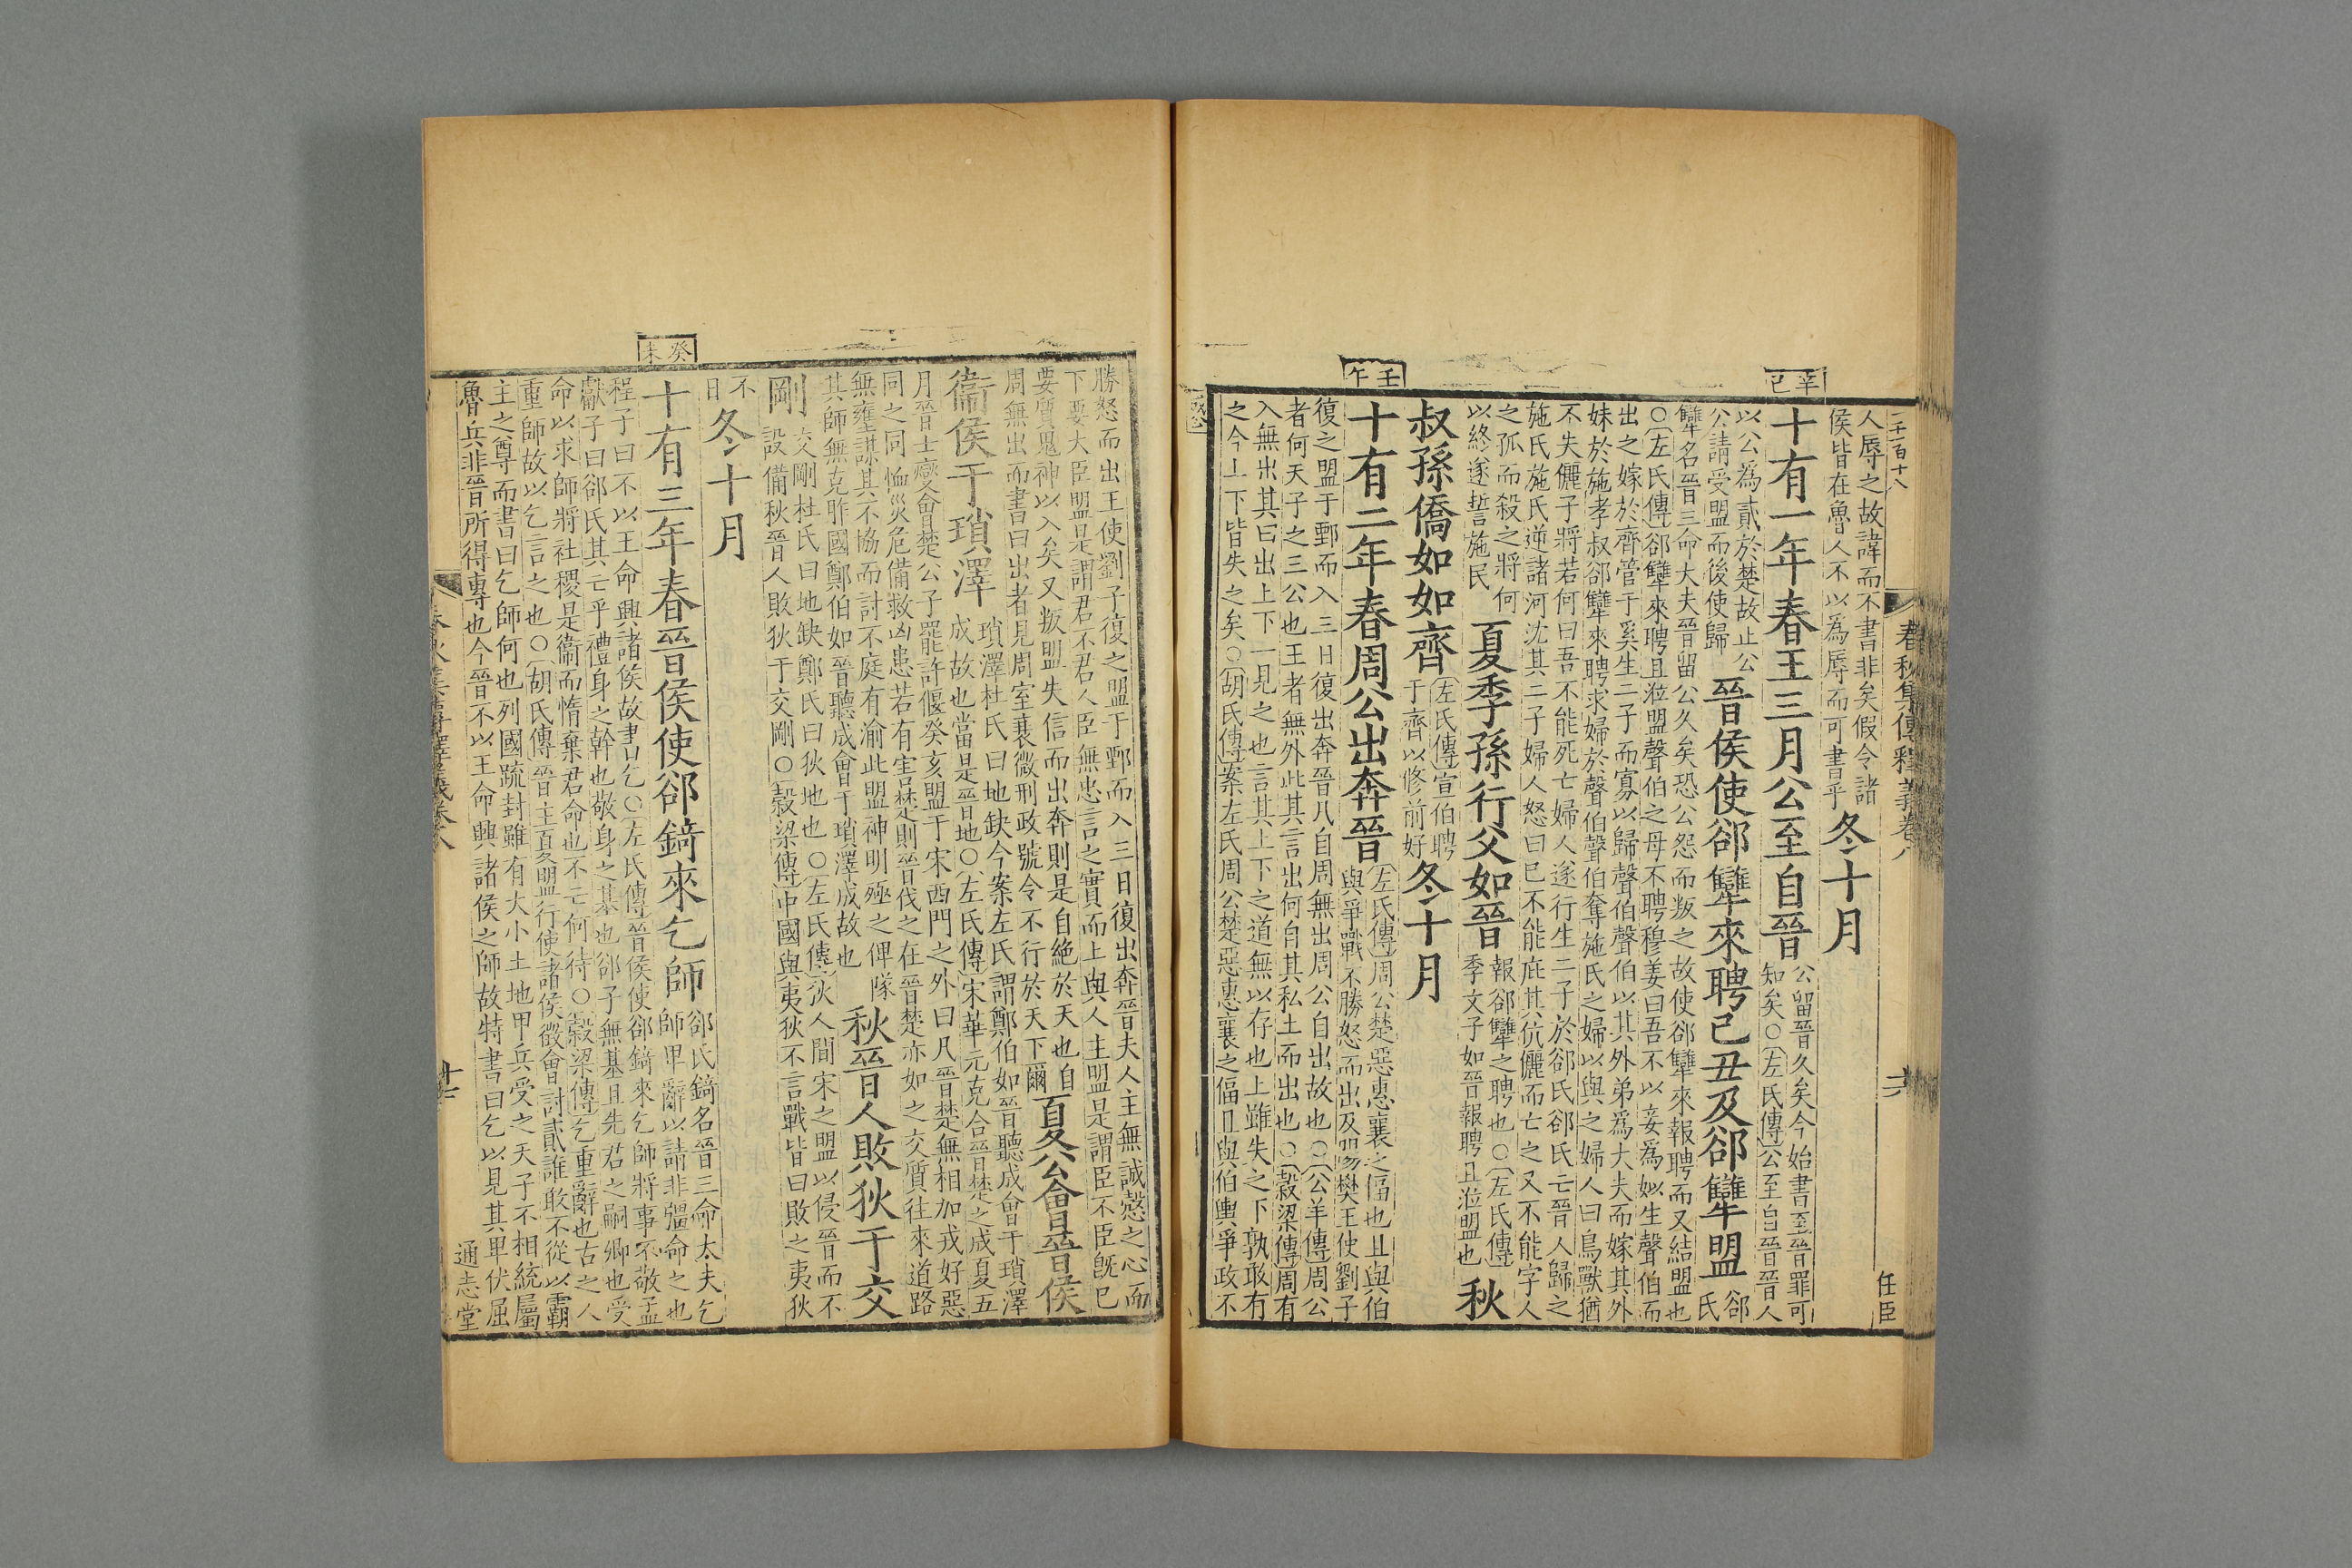 二千一百十八
春秋集傳釋義卷八
任臣
人辱之故諱而不書非矣假令諸
侯皆在魯人不以爲辱而可書乎
冬十月
辛巳
十有一年春王三月公至自晉
公留晉久矣今始書至晉罪可
知矣○左氏傳公至自晉晉人
以公爲貳於楚故止公
公請受盟而後使歸
晉侯使郤犨來聘己丑及郤犨盟
郤
氏
犨名晉三命大夫晉留公久矣恐公怨而叛之故使郤犨來報聘而又結盟也
○左氏傳郤犨來聘且涖盟聲伯之母不聘穆姜曰吾不以妾爲姒生聲伯而
出之嫁於齊管于奚生二子而寡以歸聲伯聲伯以其外弟爲大夫而嫁其外
妹於施孝叔郤犨來聘求婦於聲伯聲伯奪施氏之婦以與之婦人曰鳥獸猶
不失儷子將若何曰吾不能死亡婦人遂行生二子於郤氏郤氏亡晉人歸之
施氏施氏逆諸河沈其二子婦人怒曰已不能庇其伉儷而亡之又不能字人
之孤而殺之將何
以終遂誓施民
夏季孫行父如晉
報郤犨之聘也○左氏傳
季文子如晉報聘且涖盟也
秋
叔孫僑如如齊
左氏傳宣伯聘
于齊以修前好
冬十月
壬午
十有二年春周公出奔晉
左氏傳周公楚惡惠襄之偪也且與伯
與爭戰不勝怒而出及陽樊王使劉子
復之盟于鄄而入三日復出奔晉凡自周無出周公自出故也○公羊傳周公
者何天子之三公也王者無外此其言出何自其私土而出也○穀梁傳周有
入無出其曰出上下一見之也言其上下之道無以存也上雖失之下孰敢有
之今上下皆失之矣○胡氏傳案左氏周公楚惡惠襄之偪且與伯輿爭政不
勝怒而出王使劉子復之盟于鄄而入三日復出奔晉夫人主無誠愨之心而
下要大臣盟是謂君不君人臣無忠言之實而上與人主盟是謂臣不臣旣已
要質鬼神以入矣又叛盟失信而出奔則是自絶於天也自
周無出而書曰出者見周室衰微刑政號令不行於天下爾
夏公會晉侯
衞侯于瑣澤
瑣澤杜氏曰地缺今案左氏謂鄭伯如晉聽成會于瑣澤
成故也當是晉地○左氏傳宋華元克合晉楚之成夏五
月晉士燮會楚公子罷許偃癸亥盟于宋西門之外曰凡晉楚無相加戎好惡
同之同恤災危備救凶患若有害楚則晉伐之在晉楚亦如之交贄往來道路
無壅謀其不協而討不庭有渝此盟神明殛之俾隊
其師無克胙國鄭伯如晉聽成會于瑣澤成故也
秋晉人敗狄于交
剛
交剛杜氏曰地缺鄭氏曰狄地也○左氏傳狄人間宋之盟以侵晉而不
設備秋晉人敗狄于交剛○穀梁傳中國與夷狄不言戰皆曰敗之夷狄
不
日
冬十月
癸未
十有三年春晉侯使郤錡來乞師
郤氏錡名晉三命大夫乞
師卑辭以請非彊命之也
程子曰不以王命興諸侯故書乞○左氏傳晉侯使郤錡來乞師將事不敬孟
獻子曰郤氏其亡乎禮身之幹也敬身之基也郤子無基且先君之嗣卿也受
命以求師將社稷是衞而惰棄君命也不亡何待○穀梁傳乞重辭也古之人
重師故以乞言之也○胡氏傳晉主夏盟行使諸侯徵會討貳誰敢不從以霸
主之尊而書曰乞師何也列國疏封雖有大小土地甲兵受之天子不相統屬
魯兵非晉所得專也今晉不以王命興諸侯之師故特書曰乞以見其卑伏屈
通志堂